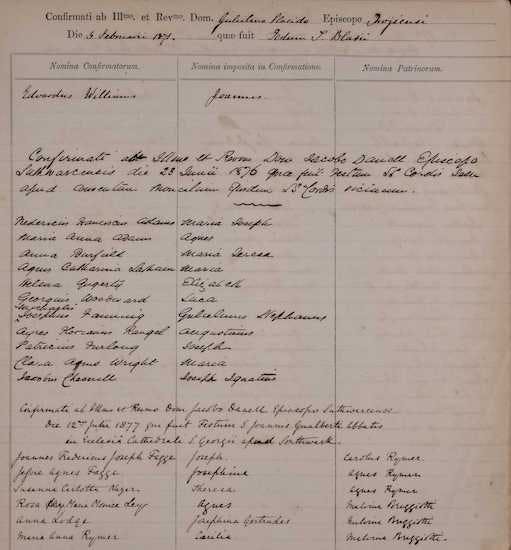 Confirmati ab Illmo. et Revmo. Dom. Gulielmo Placido Episcopo Trojensi
Die 3 Februarii 187 quo fuit Festum S. Blasii
Nomina Confirmatorum. Nomina imposita in Confirmatione. Nomina Patrinorum.
Edvardus Williams Joannes.
Confirmati ab Illmo et Revmo Dom Jacobo Danell Episcopo
Suthwarcensi die 23 Junii 1876 quo fuit Festum SS Cordis Jesu
apud SS Cordis
Fredericus Franciscus Adams Maria Joseph
Maria Anna Adams Agnes
Anna Burfield Maria Teresa
Agnes Catharina Maria
Helena Elizabeth
Georgius Woodward Luca
Josephus Fanning Gulielmus Stephanus
Augustinus
Patricius Furlong Joseph
Clara Agnes Wright Maria
Jacobus Chesnell Joseph Ignatius
Confirmati ab Illmo et Revmo Dom Jacobo Danell Episcopo Suthwarcensi
Die 12 Julii 1877 quo fuit Festum S Joannis Gualberti Abbatis
in Ecclesia Cathedrali S Georgii apud Southwark.
Joannes Fredericus Joseph Fagge Joseph. Carolus Rymer.
Agnes Fagge Josephine Agnes Rymer
Susanna Carlotta Theresa Agnes Rymer
Rosa Mary Agnes Bruggiotti
Anna Lodge Josephina Gertrudes Bruggiotti
Maria Anna Rymer Cecilia Bruggiotti.